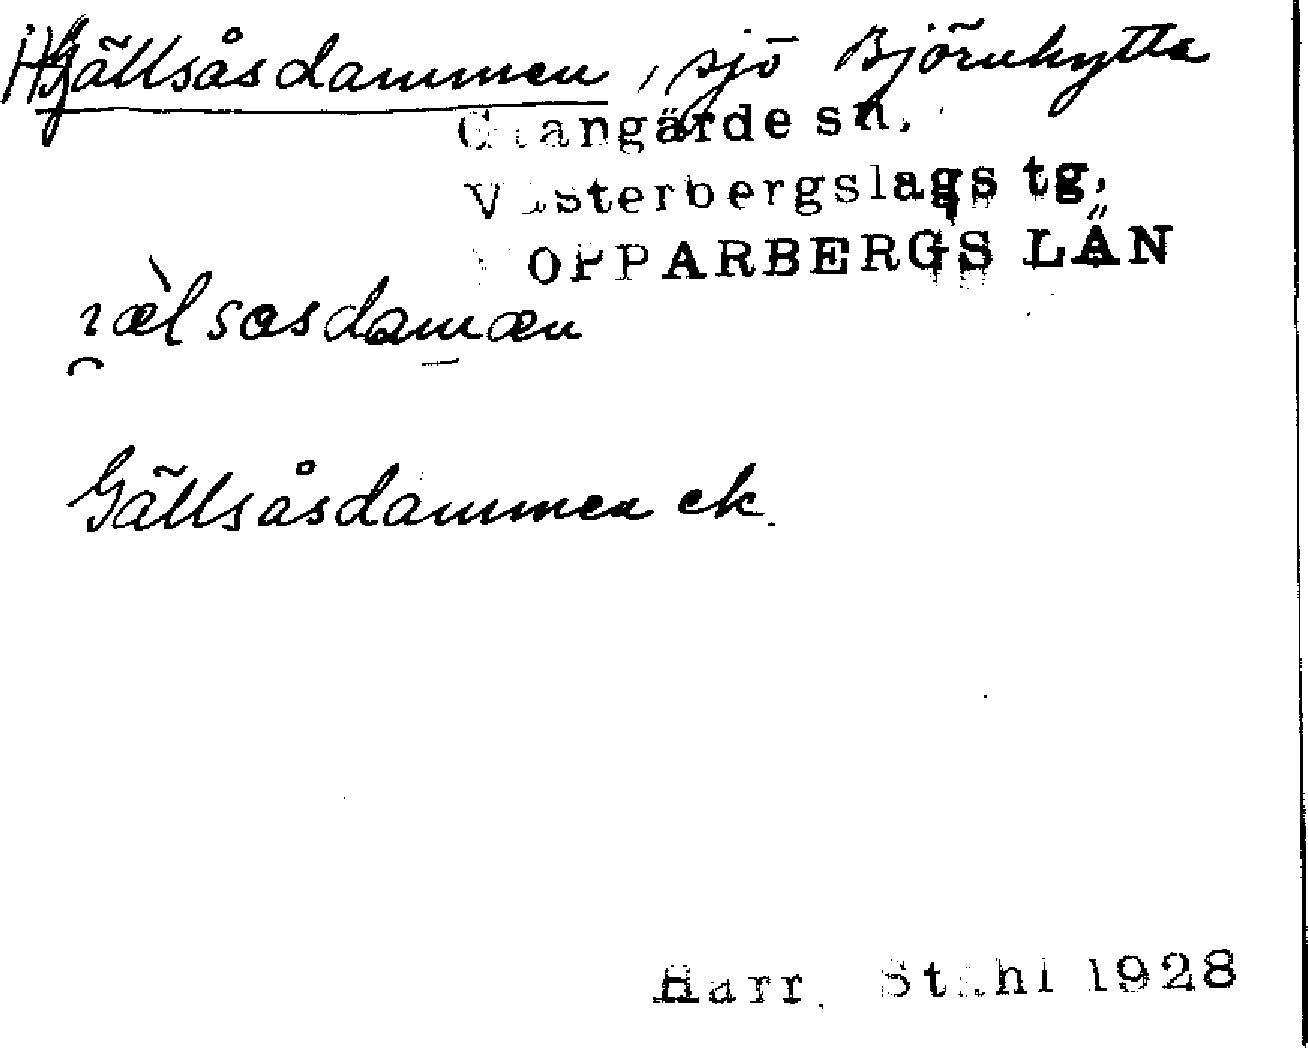 Hjällsåsdammen, sjö Björnhytta
Grangärde sn.
Västerbergslags tg.
KOPPARBERGS LÄN
Gällsåsdammen ek.
Harr. Ståhl 1928